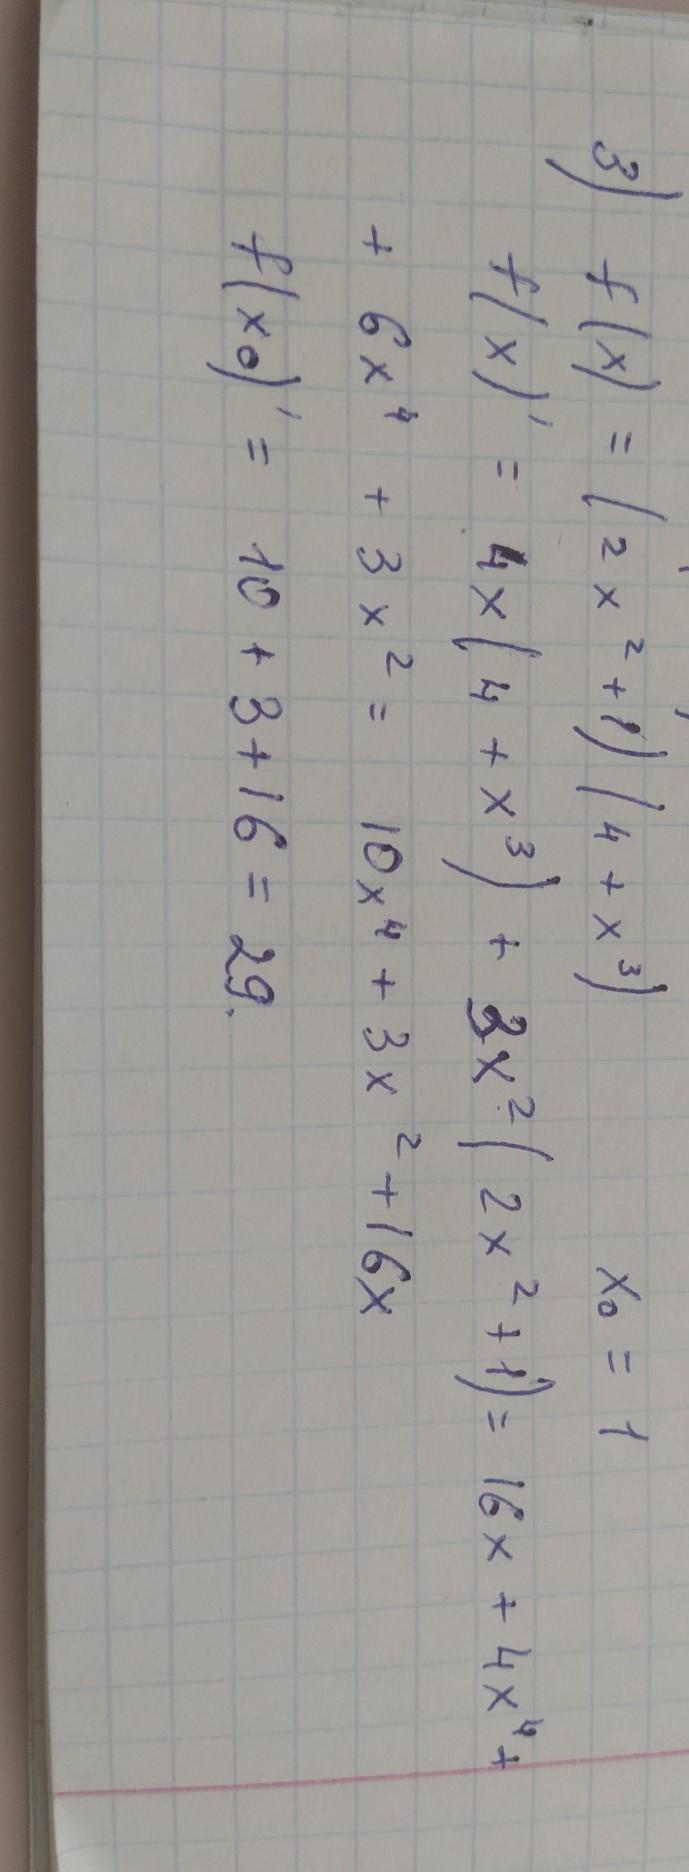 3) f(x) = (2x² + 1)(4 + x³) x₀ = 1
f(x)' = 4x(4 + x³) + 3x²(2x² + 1) = 16x + 4x⁴ +
+ 6x⁴ + 3x² = 10x⁴ + 3x² + 16x
f(x₀)' = 10 + 3 + 16 = 29.